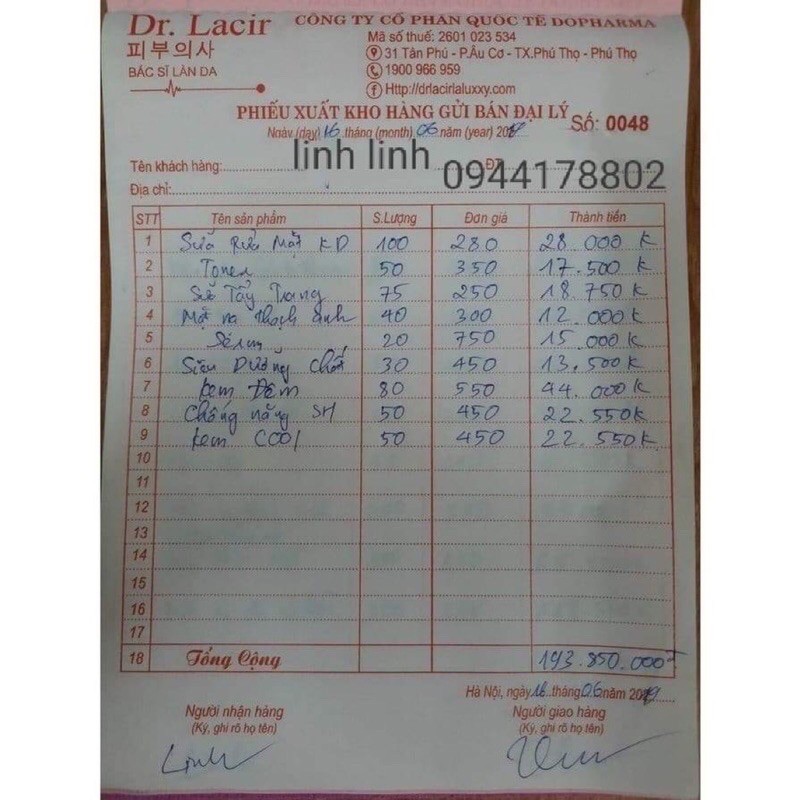 Dr. Lacir
피부의사
BÁC SĨ LÀN DA
CÔNG TY CỔ PHẦN QUỐC TẾ DOPHARMA
Mã số thuế: 2601 023 534
31 Tân Phú - P.Âu Cơ - TX.Phú Thọ - Phú Thọ
1900 966 959
Http://drlacirlaluxxy.com
PHIẾU XUẤT KHO HÀNG GỬI BÁN ĐẠI LÝ Số: 0048
Ngày (day) 16 tháng (month) 06 năm (year) 2019
Tên khách hàng: linh linh ĐT 0944178802
Địa chỉ:
STT Tên sản phẩm S.Lượng Đơn giá Thành tiền
1 Sữa Rửa Mặt KD 100 280 28 000 K
2 Toner 50 350 17.500 K
3 Sữ Tẩy Trang 75 250 18.750 K
4 Mặt na thạch anh 40 300 12.000 K
5 Sérum 20 750 15 000 K
6 Siêu Dưỡng Chất 30 450 13,500 K
7 kem Đêm 80 550 44.000 K
8 Chống nắng SH 50 450 22.550K
9 kem COOl 50 450 22.550K
10
11
12
13
14
15
16
17
18 Tổng Cộng 193.850.000
Hà Nội, ngày 16 tháng 06 năm 2019
Người nhận hàng Người giao hàng
(Ký, ghi rõ họ tên) (Ký, ghi rõ họ tên)
Linh